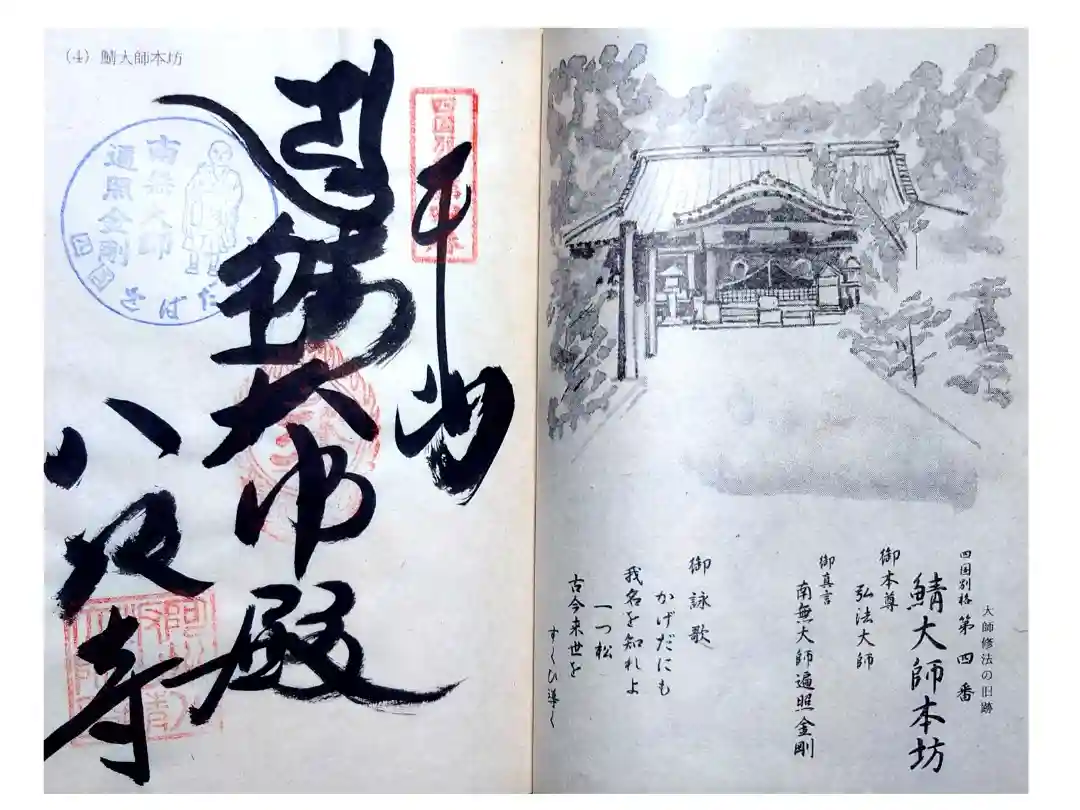 大師修法の旧跡
四国別格第四番
鯖大師本坊
御本尊
弘法大師
御真言
南無大師遍照金剛
御詠歌
かげだにも
我名を知れよ
一つ松
古今来世を
すくひ導く
(4) 鯖大師本坊
奉納
鯖大师殿
八坂寺
南無大師
遍照金剛
さばだ